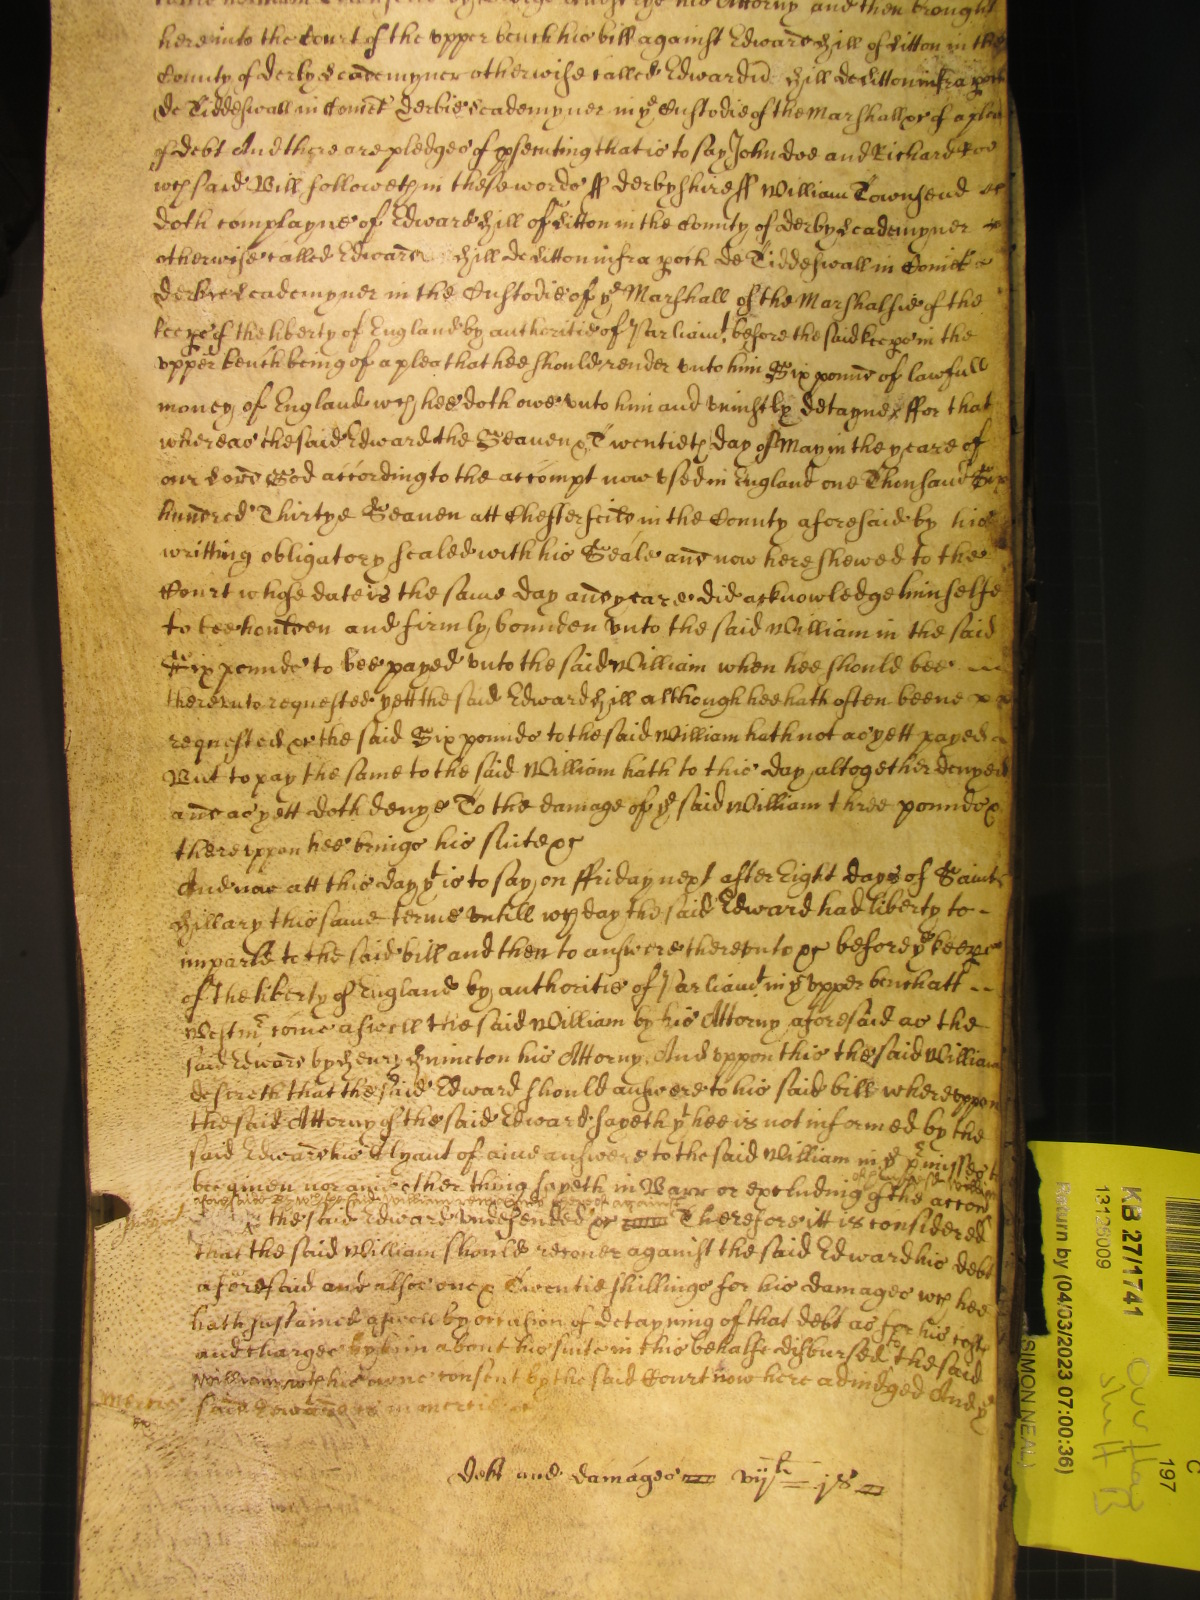 his Attorny and then brought
here into the Court of the upper bench his bill against Edward Hill of Litton in the
County of derby Leademyner otherwise called Edwardū Hill de Litton infra poch
de Tiddeswall in Comit Derbie Leademyner in ye Custodie of the Marshall &c of a plea
of debt And there are pledges of psecuting that is to say John doe and Richard Roe
wch said Bill followeth in these words ss derbyshire ss William Townsend
doth complayne of Edward Hill of Litton in the County of derby Leademyner
otherwise called Edward Hill de Litton infra poch de Tiddeswall in Comit
derbie Leademyner in the Custodie of ye Marshall of the Marshalsie of the
keeps of the liberty of England by authoritie of Parliamt before the said keeps in the
upper bench being of a plea that hee should render unto him Six pounds of lawfull
money of England wch hee doth owe unto him and uniustly detayne &c ffor that
whereas the said Edward the Seaven & Twentieth day of May in the yeare of
our Lord God according to the accompt now used in England one Thousand Six
hundred Thirtye Seaven att Chesterfeild in the County aforesaid by his
writting obligatory sealed with his Seale and now here shewed to the
Court whose date is the same day and yeare did acknowledge himselfe
to bee houlden and firmly bounden unto the said William in the said
Six pounds to bee payed unto the said William when hee should bee
thereunto requested yett the said Edward Hill although hee hath often beene
requested &c the said Six pounds to the said William hath not as yett payed
But to pay the same to the said William hath to this day altogether denyed
and as yett doth denye To the damage of ye said William three pounds &
thereuppon hee brings his suite &c
And now att this day yt is to say on ffriday next after Eight dayes of Saint
Hillary this same terme untill wch day the said Edward had liberty to
imparle to the said bill and then to answere thereunto &c before ye keeps
of the liberty of England by authoritie of Parliamt in ye upper bench att
Westmr come aswell the said William by his Attorny aforesaid as the
said Edward by Henry his Attorny And uppon this the said William
desireth that the said Edward should answere to his said bill whereuppon
the said Attorny of the said Edward sayeth yt hee is not informed by the
said Edward his Clyant of anie answere to the said William in ye pmisses to
bee given nor anie other thing sayeth in Barr or excluding of the accon
aforesaid by wch the said William remayneth thereof against
the said Edward undefended &c Therefore itt is considered
that the said William should recover against the said Edward his debt
aforesaid and alsoe one & Twentie shillings for his damages wch hee
hath sustained aswell by occasion of detayning of that debt as for his costs
and charges by him about his suite in this behalfe disbursed to the said
William with his owne consent by the said Court now here adiudged And ye
said Edward in mercie &c
Debt and damages vijli js
KB 27/1741
13125009
Return by (04/03/2023 07:00:36)
SIMON NEAL
C
197